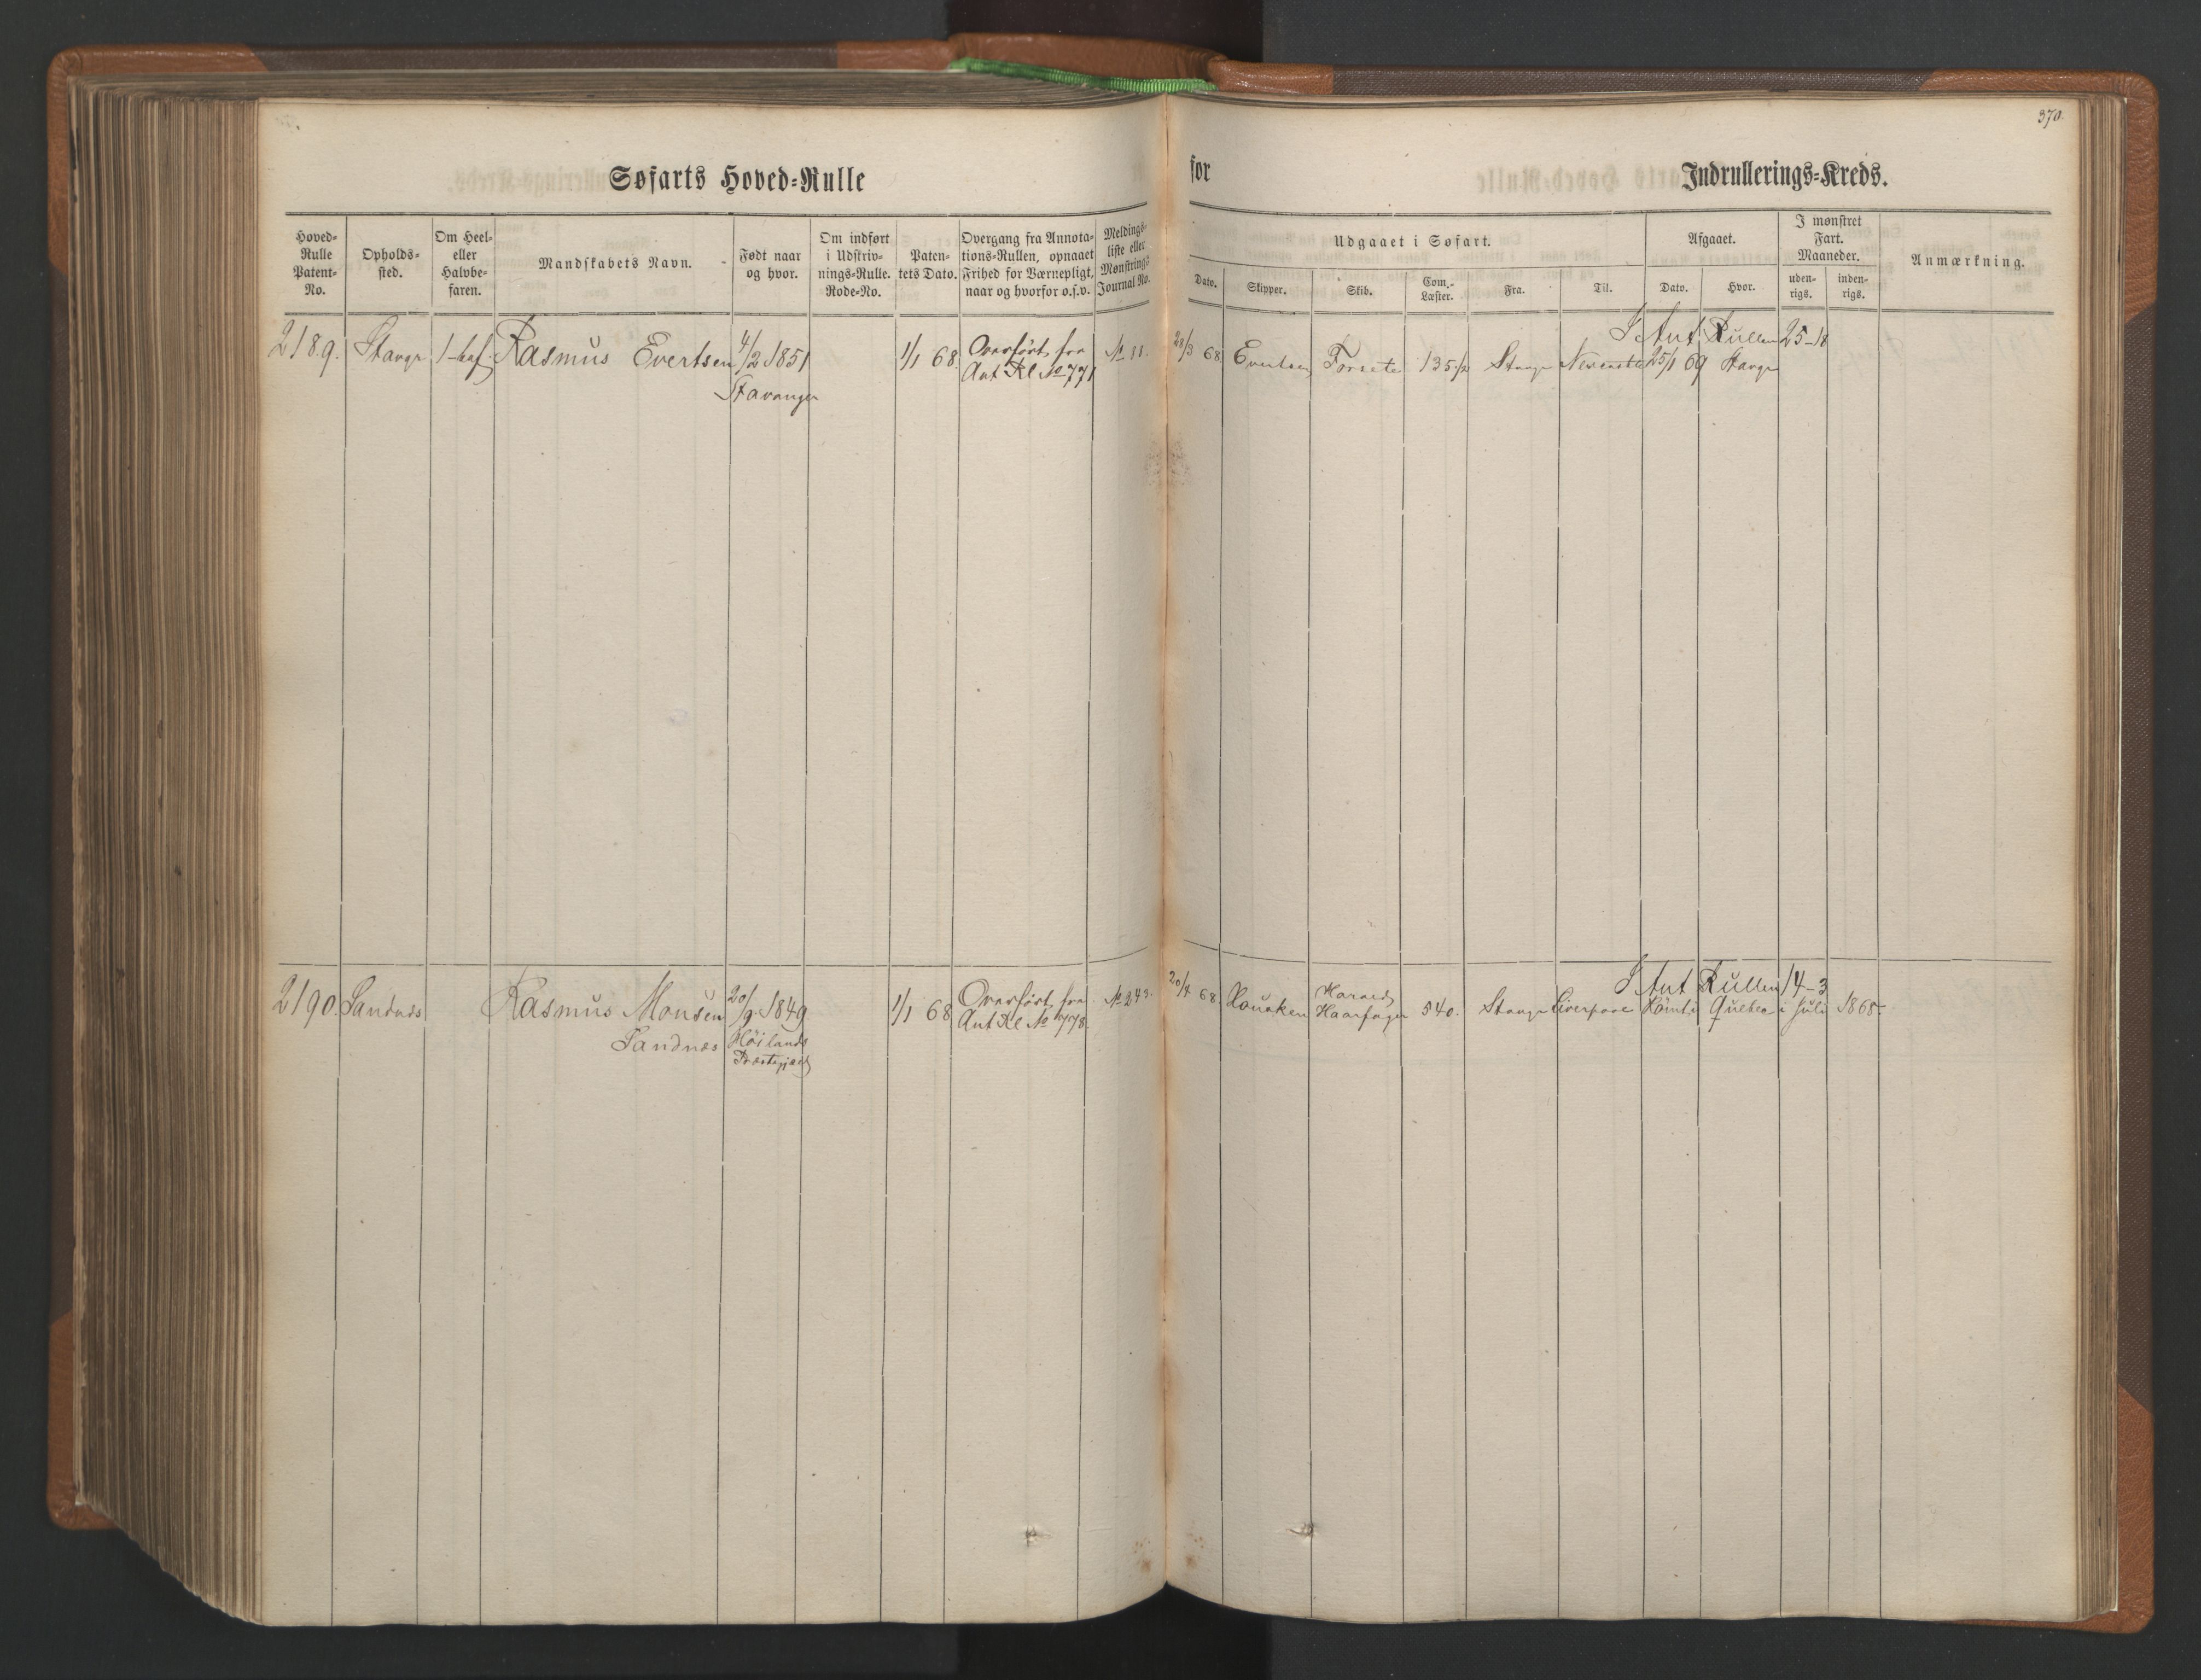 370.
Søfarts Hoved-Rulle
for
Indrullerings-Kreds.
Hoved-
Rulle
Patent-
No.
Opholds-
sted.
Om Heel-
eller
Halvbe-
faren.
Mandskabets Navn.
Født naar
og hvor.
Om indført
i Udskriv-
nings-Rulle.
Rode-No.
Paten-
tets Dato.
Overgang fra Annota-
tions-Rullen, opnaaet
Frihed for Værnepligt,
naar og hvorfor o.s.v.
Meldings-
liste eller
Mønstrings
Journal No.
Udgaaet i Søfart.
Dato.
Skipper.
Skib.
Com.-
Læster.
Fra.
Til.
Afgaaet.
Dato.
Hvor.
I mønstret
Fart.
Maaneder.
uden-
rigs.
inden-
rigs.
Anmærkning.
I Ant Rullen 25-18
2189. Stavgr Rasmus Evertsen 4/2 1851 1/1 68. Overført fra No 11. 28/3 68 Evertsen Forsete 135 1/2 Stavgr 25/1 69 Stavgr
Ant Rl No 771
Stavanger
I Ant Rullen 14-3
2190. Sandnes Rasmus Monsen 20/9 1849 1/1 68 Overført fra No 243. 20/4 68 Harald 540. Stavgr Liverpool Rømt i Quebec i Juli 1868.
Ant Rl No 778. Haarfager
Sandnes Høilands
Præstegjæld